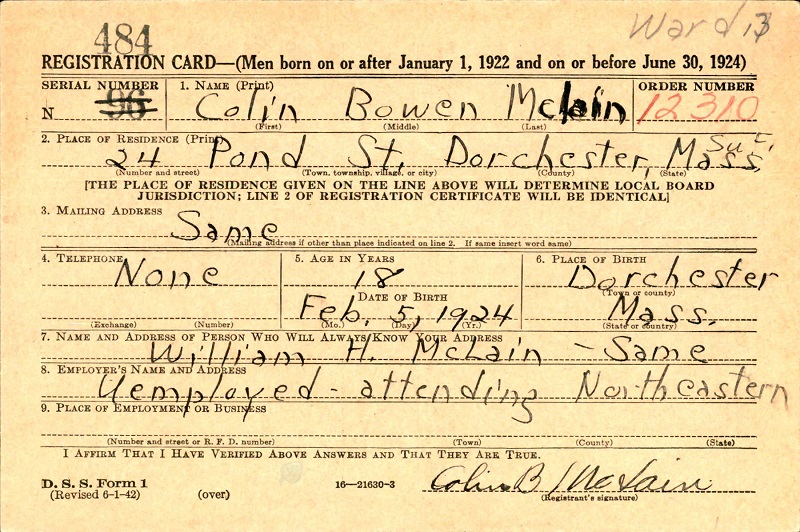 Ward 13
484
REGISTRATION CARD—(Men born on or after January 1, 1922 and on or before June 30, 1924)
SERIAL NUMBER
1. NAME (Print)
ORDER NUMBER
N 96
Colin Bowen McLain
12310
(First) (Middle) (Last)
2. PLACE OF RESIDENCE (Print)
Suf.
24 Pond St. Dorchester, Mass.
(Number and street) (Town, township, village, or city) (County) (State)
[THE PLACE OF RESIDENCE GIVEN ON THE LINE ABOVE WILL DETERMINE LOCAL BOARD
JURISDICTION; LINE 2 OF REGISTRATION CERTIFICATE WILL BE IDENTICAL]
3. MAILING ADDRESS
Same
(Mailing address if other than place indicated on line 2. If same insert word same)
4. TELEPHONE
None
(Exchange) (Number)
5. AGE IN YEARS
18
DATE OF BIRTH
Feb. 5, 1924
(Mo.) (Day) (Yr.)
6. PLACE OF BIRTH
Dorchester
(Town or county)
Mass.
(State or country)
7. NAME AND ADDRESS OF PERSON WHO WILL ALWAYS KNOW YOUR ADDRESS
William H. McLain - Same
8. EMPLOYER'S NAME AND ADDRESS
Uemployed - attending Northeastern
9. PLACE OF EMPLOYMENT OR BUSINESS
(Number and street or R. F. D. number) (Town) (County) (State)
I AFFIRM THAT I HAVE VERIFIED ABOVE ANSWERS AND THAT THEY ARE TRUE.
D. S. S. Form 1
(Revised 6-1-42) (over)
16—21630-3
Colin B McLain
(Registrant's signature)